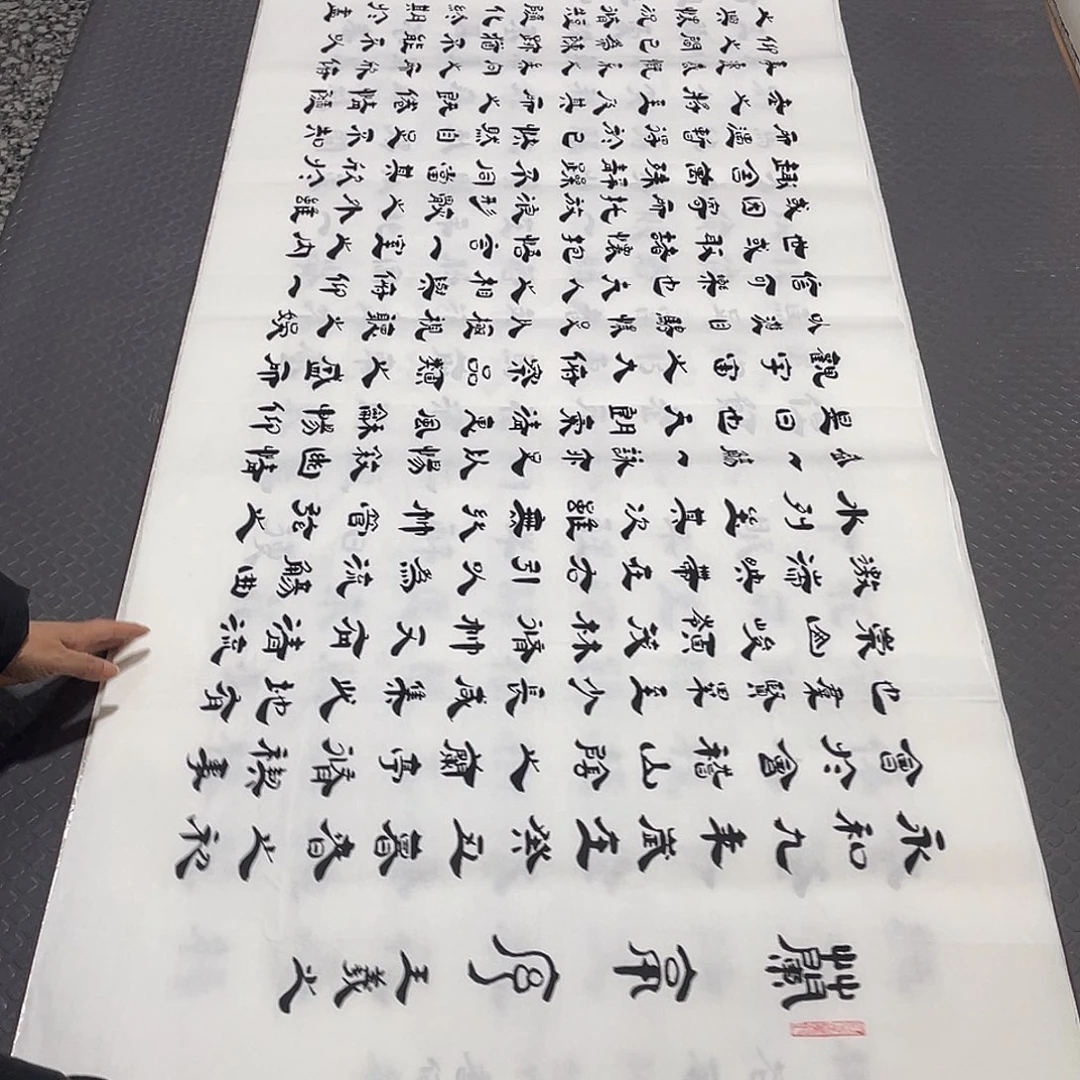 蘭亭序 王羲之
永和九年歲在癸丑暮春之初
會於會稽山陰之蘭亭脩禊事
也羣賢畢至少長咸集此地有
崇山峻嶺茂林脩竹又有清流
激湍映帶左右引以為流觴曲
水列坐其次雖無絲竹管弦之
盛一觴一詠亦足以暢敘幽情
是日也天朗氣清惠風和暢仰
觀宇宙之大俯察品類之盛所
以遊目騁懷足以極視聽之娛
信可樂也夫人之相與俯仰一
世或取諸懷抱悟言一室之內
或因寄所託放浪形骸之外雖
趣舍萬殊靜躁不同當其欣於
所遇暫得於己快然自足不知
老之將至及其所之既倦情隨
事遷感慨係之矣向之所欣俛
仰之間已為陳跡猶不能不以
之興懷況脩短隨化終期於盡